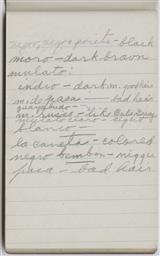 negro, negro prieto - black
moro - dark brown
mulato:
indio - dark m. good hair
m. de pasa - bad hair
m. ruso - like
mulato claro - light
blanco -
la canela - colored
negro bembon -
pasa - bad hair